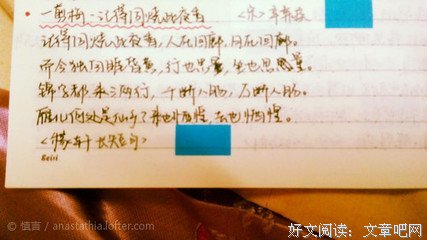 一剪梅·记得同烧此夜香 <宋>辛弃疾
记得同烧此夜香,人在回廊,月在回廊。
而今独自睚昏黄,行也思量,坐也思量。
锦字都来三两行,千断人肠,万断人肠。
雁儿何处是仙乡?来也恓惶,去也恓惶。
<稼轩长短句>
Beisi
© 慎言 / anastathia.lofter.com
好文阅读:文章吧网